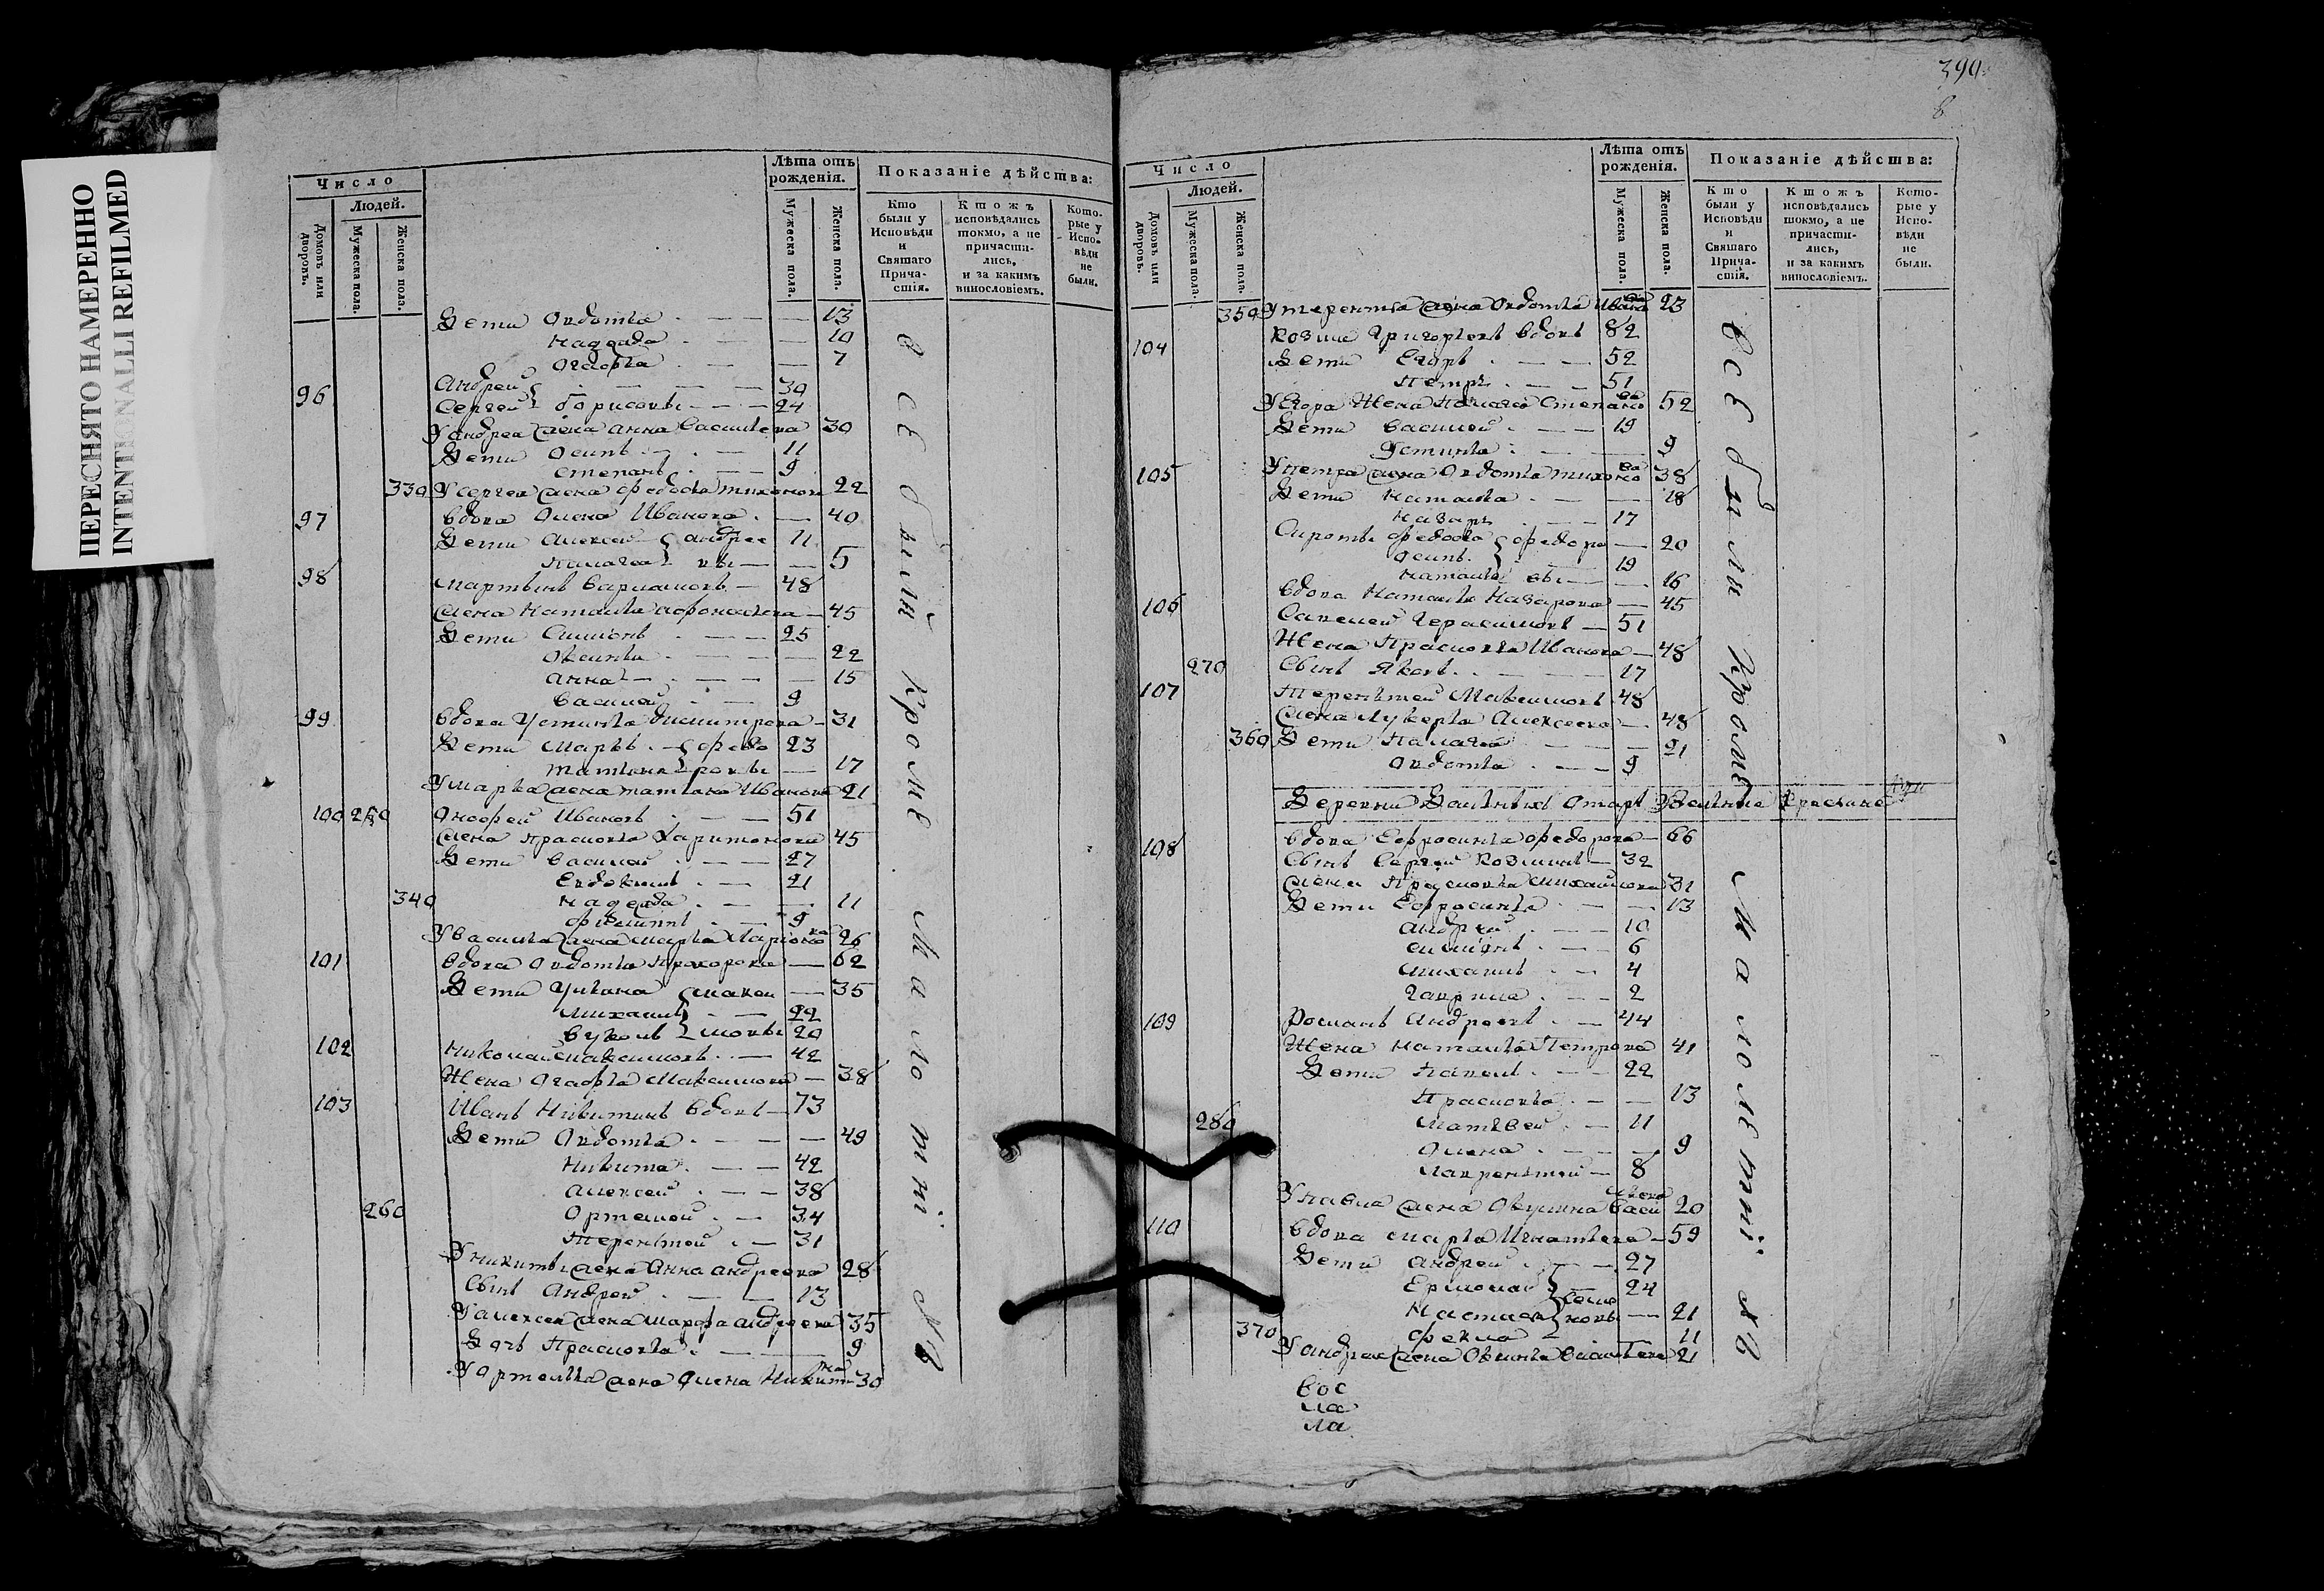 ПЕРЕСНЯТО НАМЕРЕННО
INTENTIONALLI REFILMED
Число
Людей.
Домовъ или дворовъ.
Мужеска пола.
Женска пола.
Лѣта отъ рожденія.
Мужеска пола.
Женска пола.
Показаніе дѣйства:
Кто были у Исповѣди и Святаго Причастія.
Ктожъ исповѣдались токмо, а не причастились, и за какимъ винословіемъ.
Которые у Исповѣди не были.
Дети Овдотья 13
Надежда 10
Огафья 7
96 Андрей 30
Сергей Борисовы 24
У андрея жена анна васильева 30
Дети Осипъ 11
Степанъ 9
330 У сергея жена федосья тихонова 22
97 вдова Олена Иванова 40
Дети Алексей андрее 11
Палагея вы 5
98 Мартынъ Варламовъ 48
жена Наталья 45
Дети Симионъ 25
Оксинья 22
Анна 15
Василей 9
99 вдова Устинья димитрова 31
Дети Маркъ федо 23
Татьяна ровы 17
У марка жена татьяна Иванова 21
100 250 Иванов 51
жена прасковья Харитонова 45
Дети Василей 27
Евдокимъ 21
340 Надежда 11
Филиппъ 9
У василья жена марья Ларионова 26
101 вдова Овдотья Прохорова 62
Дети Ульяна макси 35
Михаила 22
мовы 20
102 Николай максимовъ 42
Жена Огафья Максимова 38
103 Иванъ Никитинъ вдовъ 73
Дети Овдотья 49
Никита 42
Алексей 38
260 Ортемей 34
Терентей 31
У никиты жена Анна андреева 28
Сынъ Андрей 13
У алексея жена марфа андреева 35
Дочь Прасковья 9
У Ортемья жена Олена Никитина 30
всѣ были кромѣ малолѣтнї хъ
390
8
Число
Людей.
Домовъ или дворовъ.
Мужеска пола.
Женска пола.
Лѣта отъ рожденія.
Мужеска пола.
Женска пола.
Показаніе дѣйства:
Кто были у Исповѣди и Святаго Причастія.
Ктожъ исповѣдались токмо, а не причастились, и за какимъ винословіемъ.
Которые у Исповѣди не были.
350 У терентья жена Овдотья Иванова 23
104 Козма Григорьевъ вдовъ 82
Дети Егоръ 52
Петръ 51
У Егора Жена Палагея Степанова 52
Дети Василей 19
Устинья 9
105 У петра жена Овдотья тихонова 38
Дети Наталья 18
Назаръ 17
Сироты федосья федоро 20
Осипъ 19
Наталья вы 16
вдова Наталья Назарова 45
106 Савелей Герасимовъ 51
Жена Прасковья Иванова 48
270 Сынъ Яковъ 17
107 Терентей Максимовъ 48
жена Лукерья Алексеева 48
360 Дети Палагея 21
Овдотья 9
Деревни
108 вдова Ефросинья федорова 66
Сынъ Сергей Козминъ 32
жена Прасковья михайлова 31
Дети Ефросинья 13
Андрей 10
Симионъ 6
Михаилъ 4
Гаврила 2
109 Романъ Андреевъ 44
Жена Наталья Петрова 41
Дети Павелъ 22
Прасковья 13
280 Матвей 11
Олена 9
Лаврентей 8
У павла жена Окулина Васильева 20
110 вдова марья Игнатьева 59
Дети Андрей 27
Ермолай 24
Настасья 21
370 Фекла 11
У андрея жена Оксинья Васильева 21
всѣ были кромѣ малолѣтнї хъ